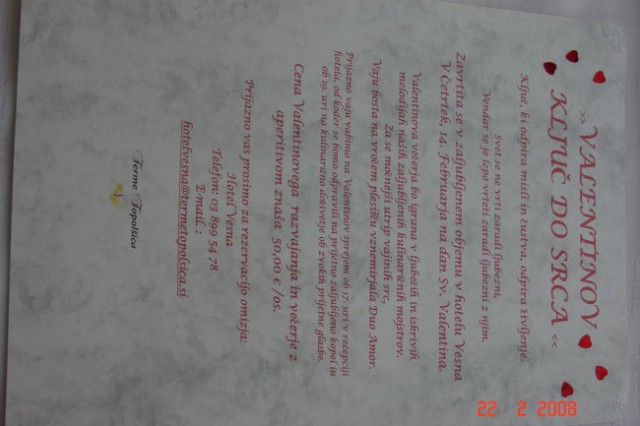 >> VALENTINOV
KLJUČ DO SRCA <<
Ključ, ki odpira misli in čustva, odpira življenje.
Svet se ne vrti zaradi ljubezni,
Vendar se je lepo vrteti zaradi ljubezni z njim.
Zavrtita se v zaljubljenem objemu v hotelu Vesna
V Četrtek, 14. Februarja na dan Sv. Valentina.
Valentinova večerja bo igrana v ljubečih in iskrivih
melodijah naših zaljubljenih kulinaričnih mojstrov.
Za še močnejši utrip vajinih src,
Vaju bosta na vročem plesišču vznemirjala Duo Amor.
Prijazno vaju vabimo na Valentinov sprejem ob 17. uri v recepciji
hotela, od koder se bomo odpravili na prijetno zaljubljeno kopel in
ob 19. uri na kulinarično doživetje ob zvokih prijetne glasbe.
Cena Valentinovega razvajanja in večerje z
aperitivom znaša 50,00 €/os.
Prijazno vas prosimo za rezervacijo omizja:
Hotel Vesna
Telefon: 03 899 54 78
E mail :
hotelvesna@termetopolsica.si
Terme Topolšica
22 2 2008